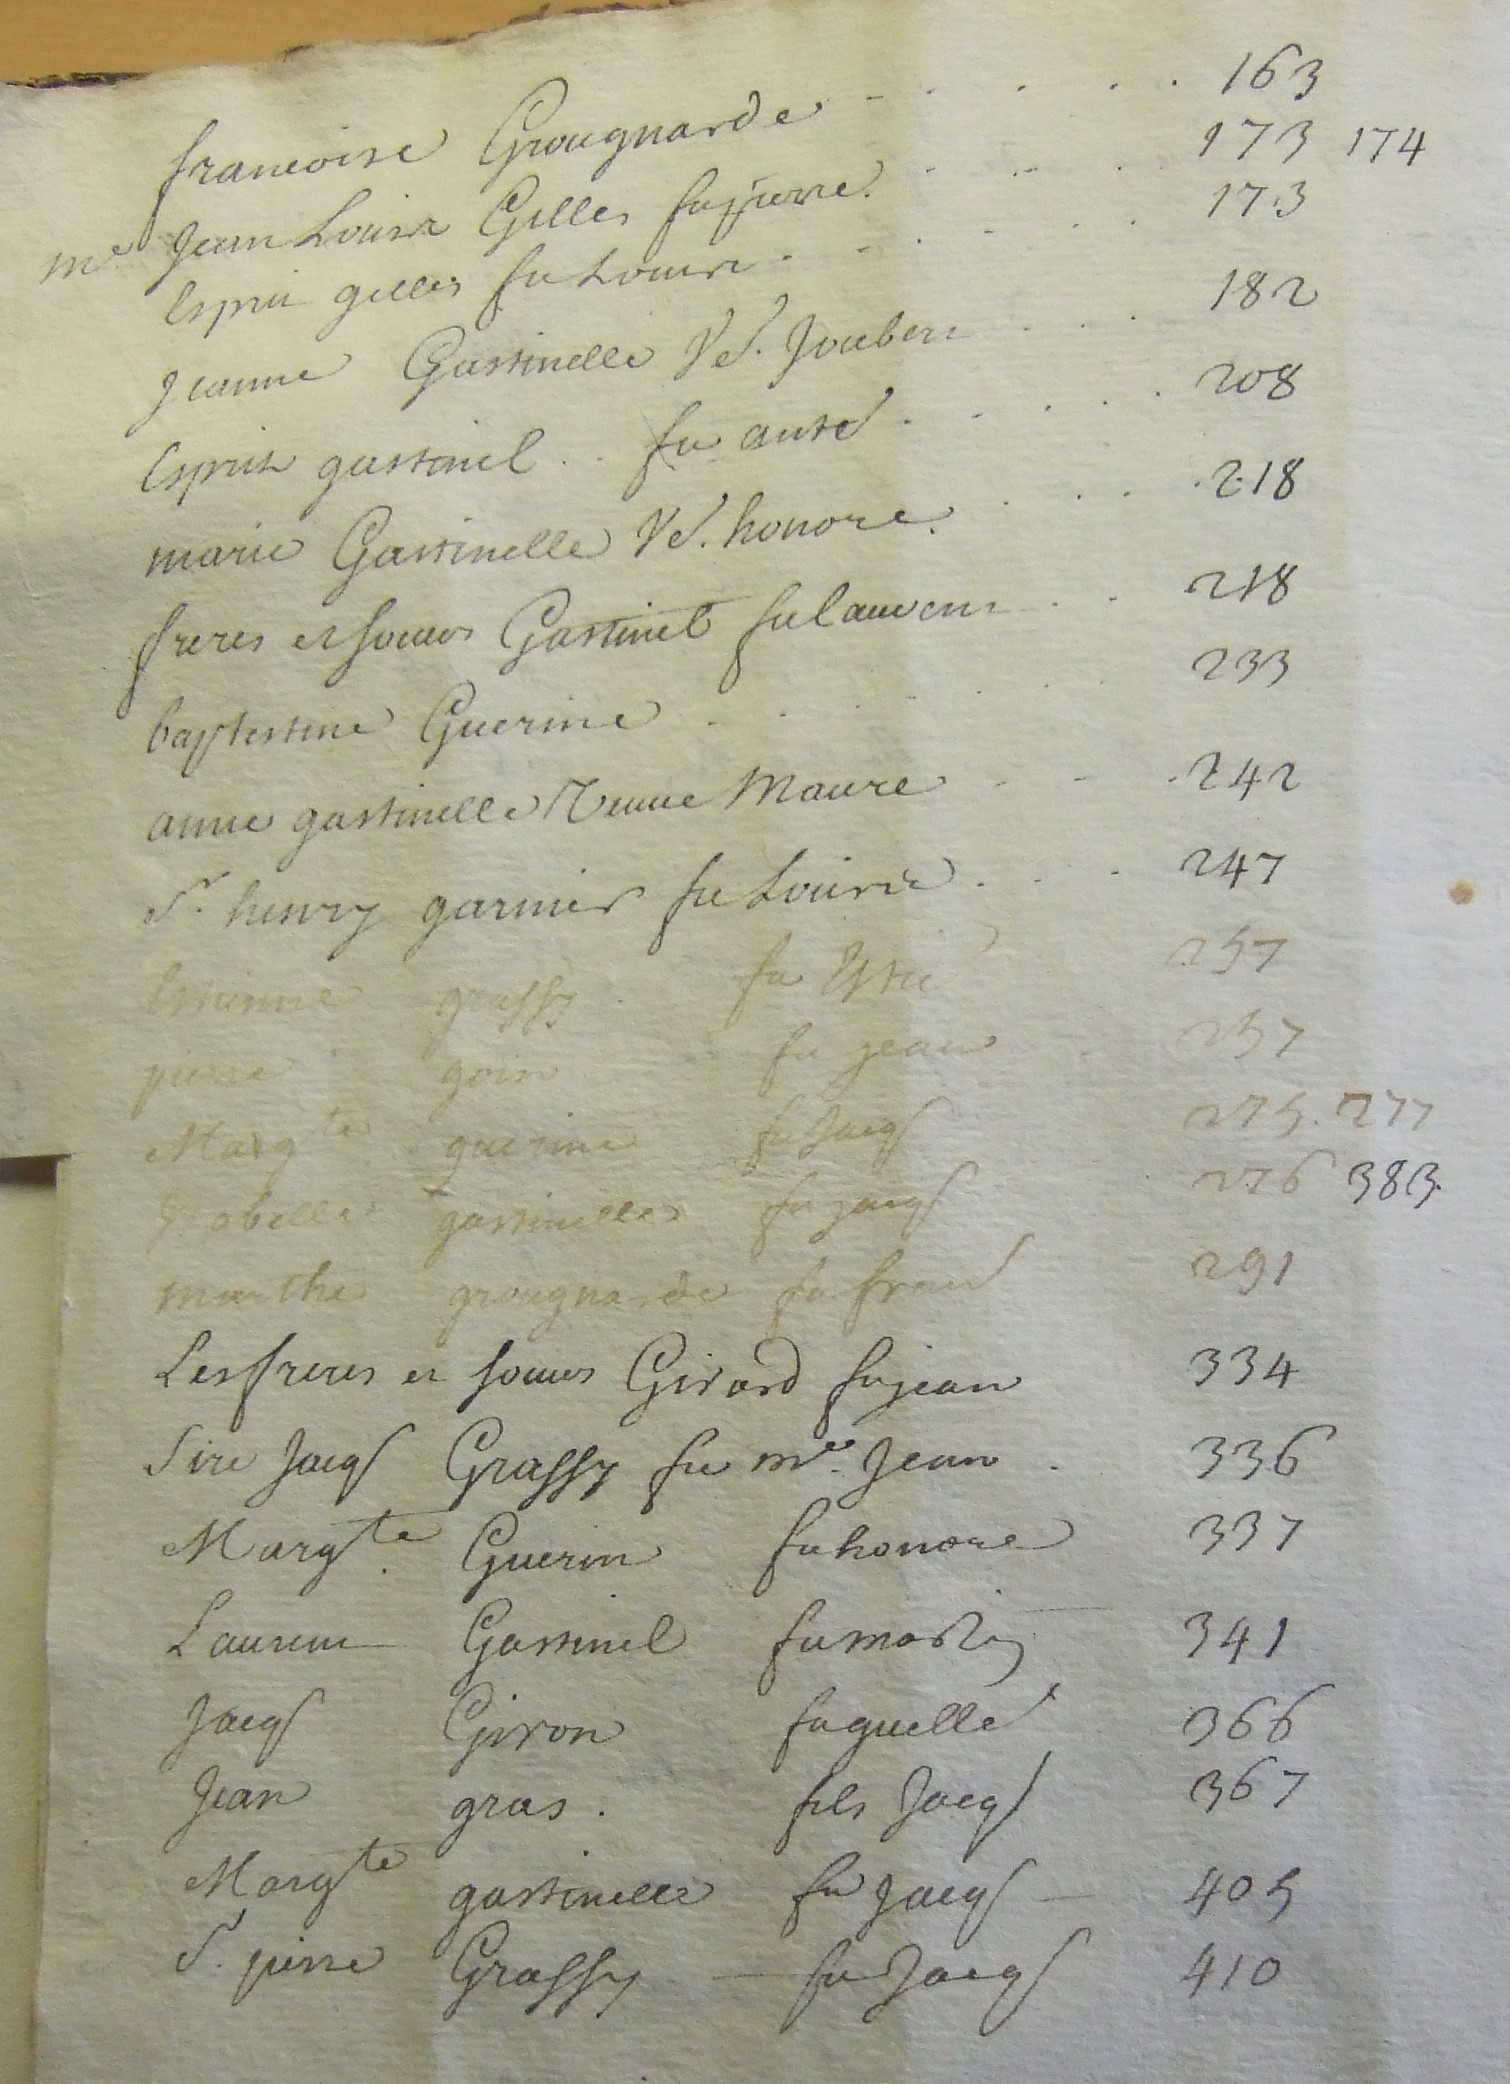 francoise Grougnarde - . . . . . 163
me Jean Louis Gilles fu pierre . . . . 173 174
Esprit gilles fu Louis . . . . . 173
Jeanne Gastinelle Ve. Joubert . . . 182
Esprit gastinel .. fu anté . . . . . 208
marie Gastinelle Ve. honore. . . . 218
freres et soeurs Gastinel fu laurens . . 218
baptistine Guerine . . . . . 233
anne gastinelle Veuve Maure . . . 242
Sr. henry garnier fu Louis . . . 247
Estienne grassy fu 257
pierre goin fu jean 257
Margte guerine fu Jacqs 275. 277
Isabelle gastinelle fu jacqs 276 383.
marthe grougnarde fu francs 291
Les freres et soeurs Girard fu jean 334
Sire Jacqs Grassy fu me. Jean . 336
Margte. Guerin fu honore 337
Laurent Gastinel fu martin 341
Jacqs Giron fu guelle 366
Jean gras . fils Jacqs 367
Margte gastinelle fu Jacqs — 405
Sr. pierre Grassy — fu Jacqs 410